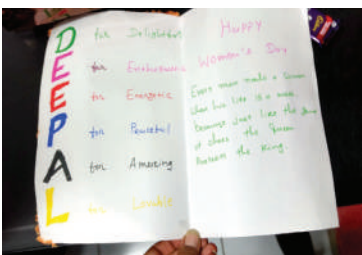 D for Delightful
E for Enthusiastic
E for Energetic
P for Peaceful
A for Amazing
L for Lovable
Happy
Women's Day
Every man needs a Queen
when his life is a mess,
because just like the game
of chess the Queen
Protects the King.